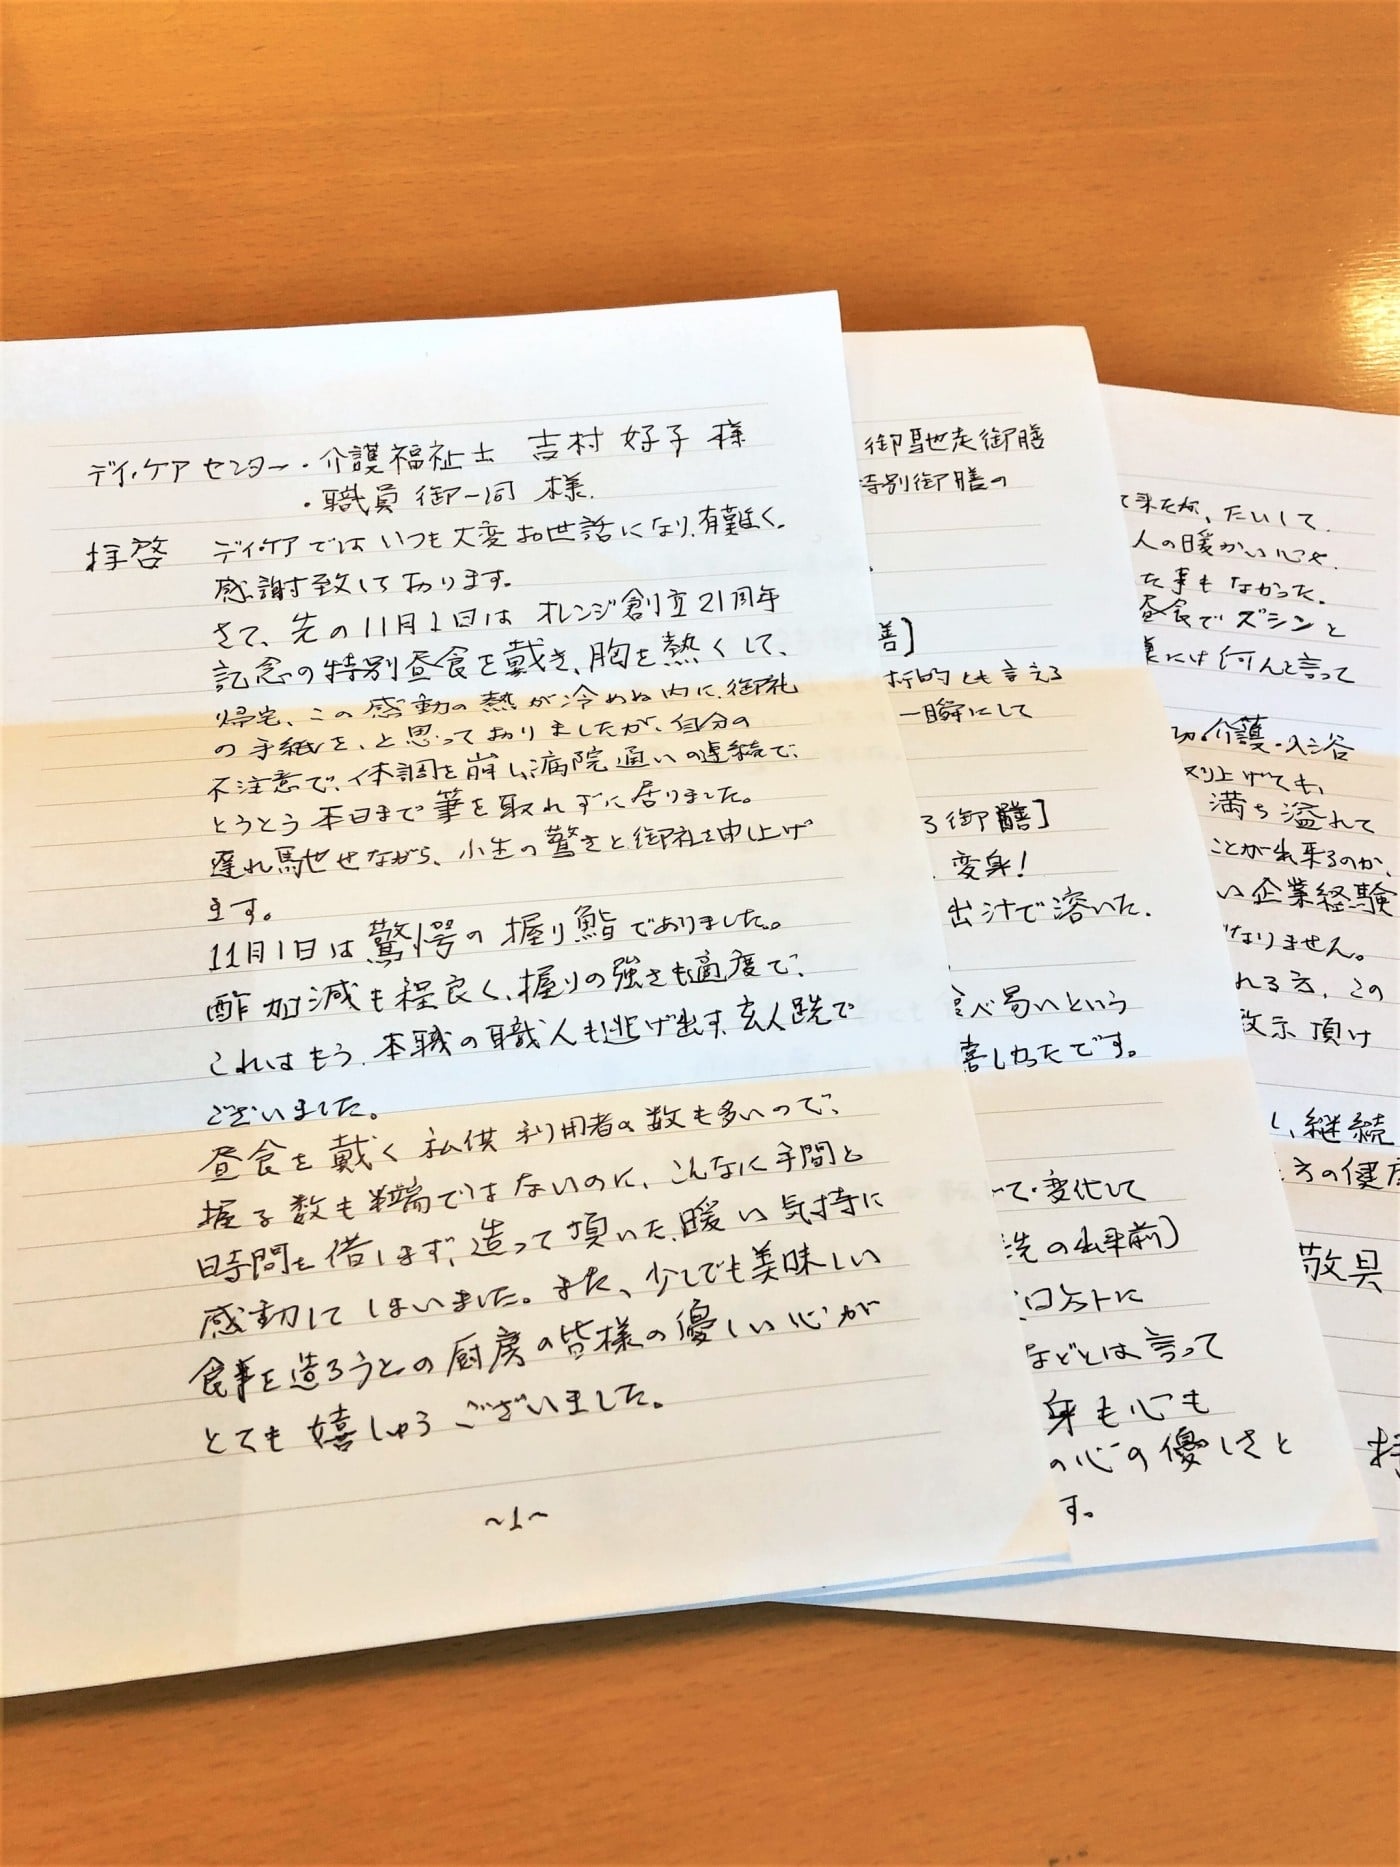 デイ・ケアセンター・介護福祉士 吉村 好子 様
・職員 御一同 様.
拝啓 デイ・ケアではいつも大変お世話になり、有難く、
感謝致しております。
さて、先の11月1日は オレンジ創立21周年
記念の特別昼食を戴き、胸を熱くして、
帰宅、この感動の熱が冷めぬ内に、御礼
の手紙を、と思っておりましたが、自分の
不注意で、体調を崩し、病院通いの連続で、
とうとう本日まで筆を取れずに居りました。
遅れ馳せながら、小生の驚きと御礼を申し上げ
ます。
11月1日は驚愕の握り鮨でありました。
酢加減も程良く、握りの強さも適度で、
これはもう、本職の職人も逃げ出す、玄人跣で
ございました。
昼食を戴く私供利用者の数も多いので、
握る数も半端ではないのに、こんなに手間と
時間を借しまず、造って頂いた、暖い気持に
感動してしまいました。また、少しでも美味しい
食事を造ろうとの厨房の皆様の優しい心が
とても嬉しゅうございました。
~1~
御馳走御膳
特別御膳の
膳]
標的とも言える
一瞬にして
る御膳]
変身!
出汁で溶いた.
食べ易いという
喜しかったです。
て・変化して
洗の出年前)
ロケトに
などとは言って
身も心も
の心の優しさと
す。
て来たが、たいして.
人の暖かい心を.
た事もなかった。
昼食でズシンと
には何んと言って
介護・入浴
上げても、
満ち溢れて
ことが出来るのか、
い企業経験
なりません。
れる方、この
教示頂け
し、継続
方の健康
敬具